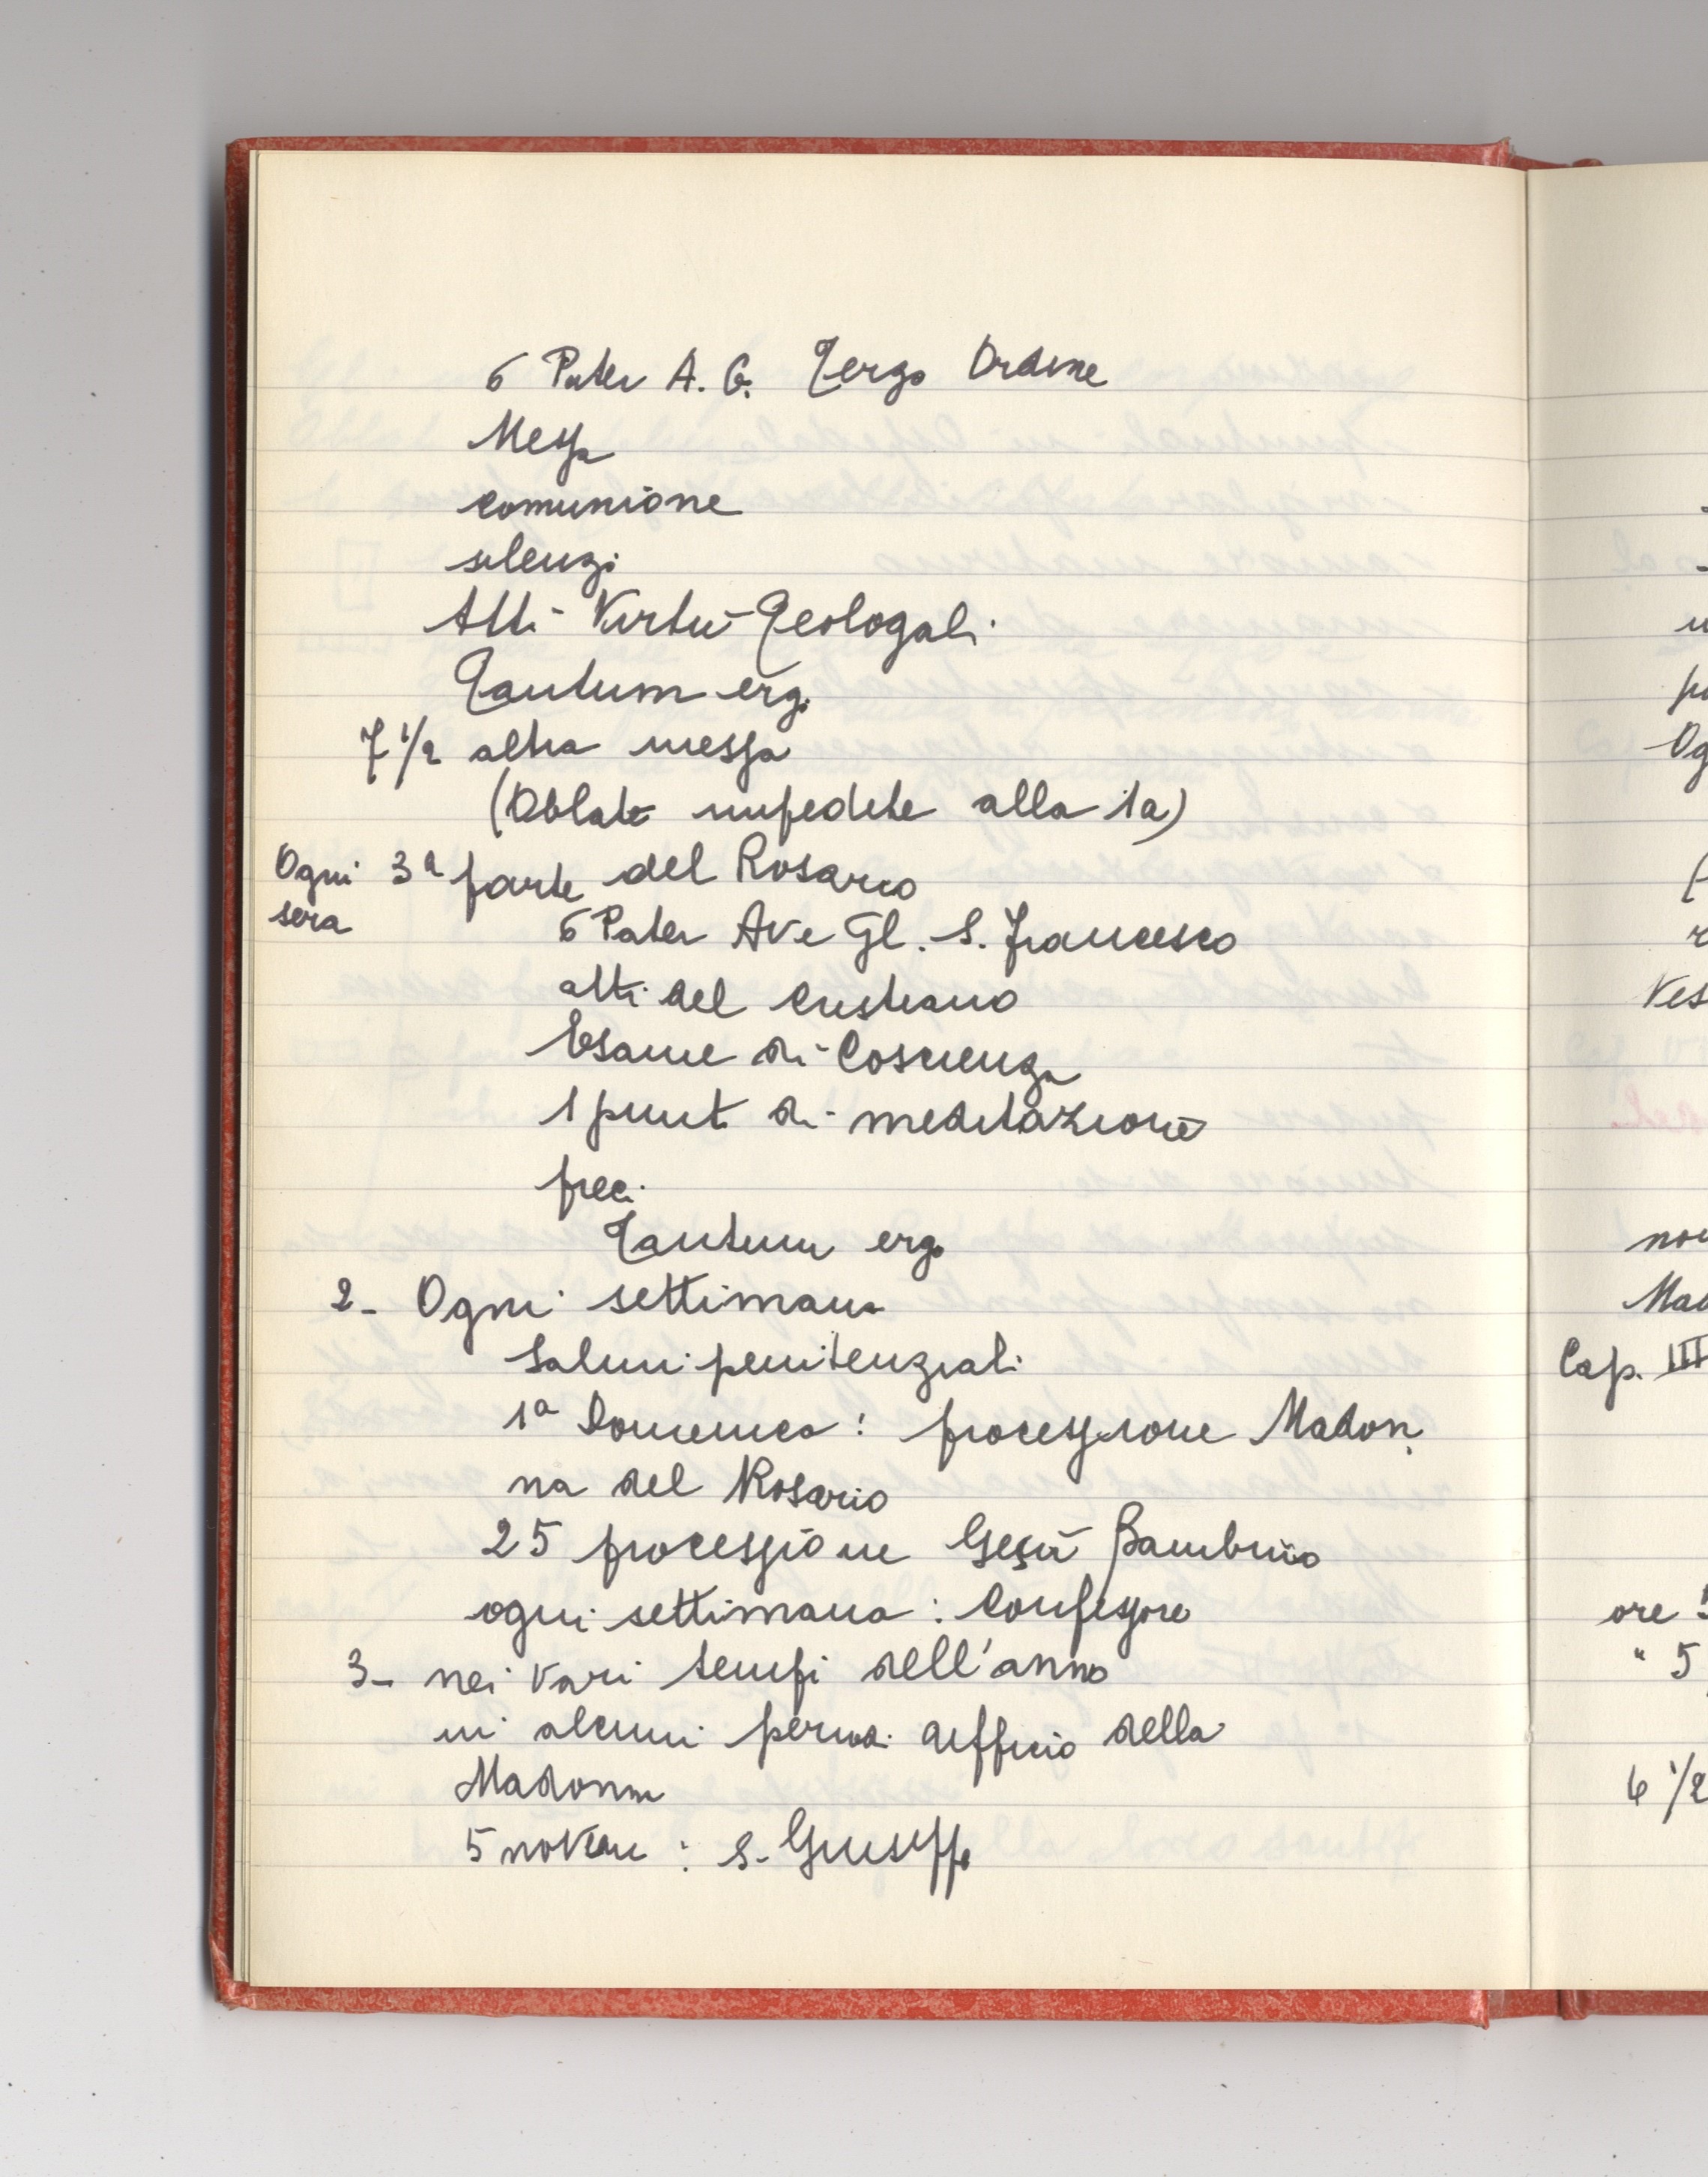 6 Pater A. G. Terzo Ordine
Messa
comunione
silenzi
Atti Virtù Teologali
Tantum ergo
7 1/2 altra messa
(Oblate impedite alla 1a)
Ogni sera 3a parte del Rosario
6 Pater Ave Gl. S. Francesco
atti del cristiano
Esame di Coscienza
1 punto di meditazione
preci
Tantum ergo
2- Ogni settimana
Salmi penitenziali
1a Domenica: processione Madon
na del Rosario
25 processione Gesù Bambino
ogni settimana: Confessore
3- nei vari tempi dell'anno
in alcuni periodi ufficio della
Madonna
5 novene: S. Giuseppe
Og
Ves
Mad
Cap. III
ore 5
" 5
6 1/2